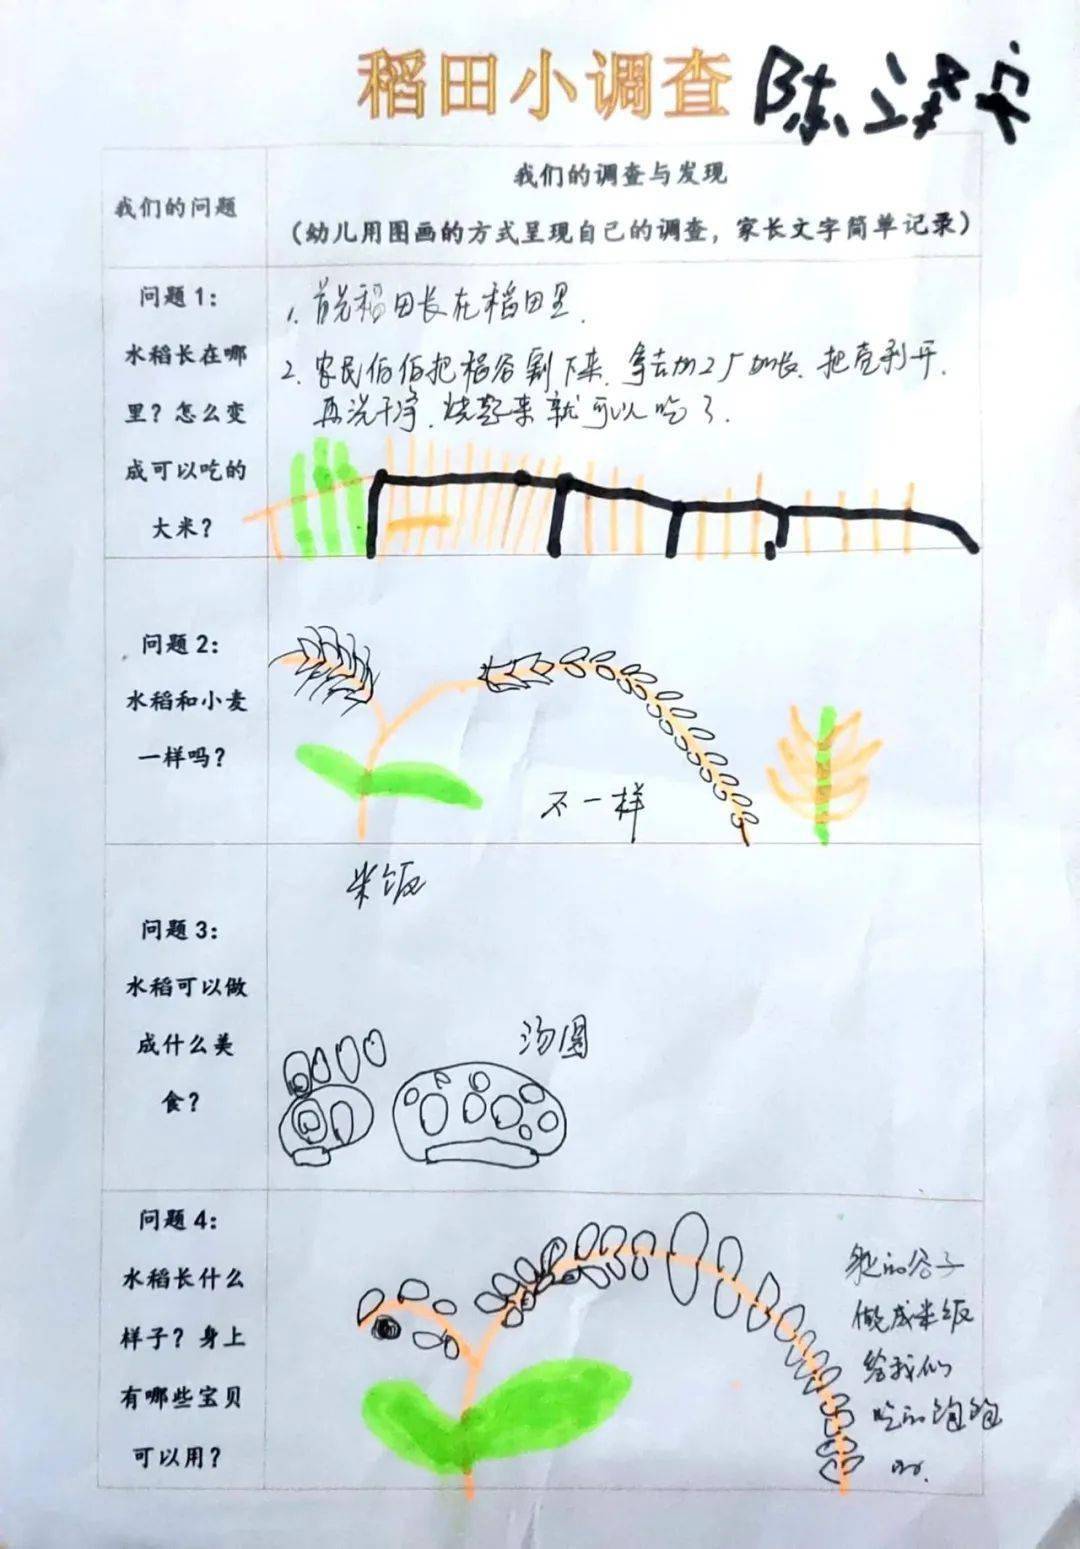 稻田小调查 陈
我们的问题
我们的调查与发现
（幼儿用图画的方式呈现自己的调查，家长文字简单记录）
问题1：
水稻长在哪
里？怎么变
成可以吃的
大米？
1. 首先稻田长在稻田里.
2. 农民伯伯把稻谷割下来.拿去加工厂加长.把壳剥开.
再洗干净.烧起来就可以吃了.
问题2：
水稻和小麦
一样吗？
不一样
问题3：
水稻可以做
成什么美
食？
米饭
汤圆
问题4：
水稻长什么
样子？身上
有哪些宝贝
可以用？
的谷子
做成米饭
给我们
吃的饱饱
的.